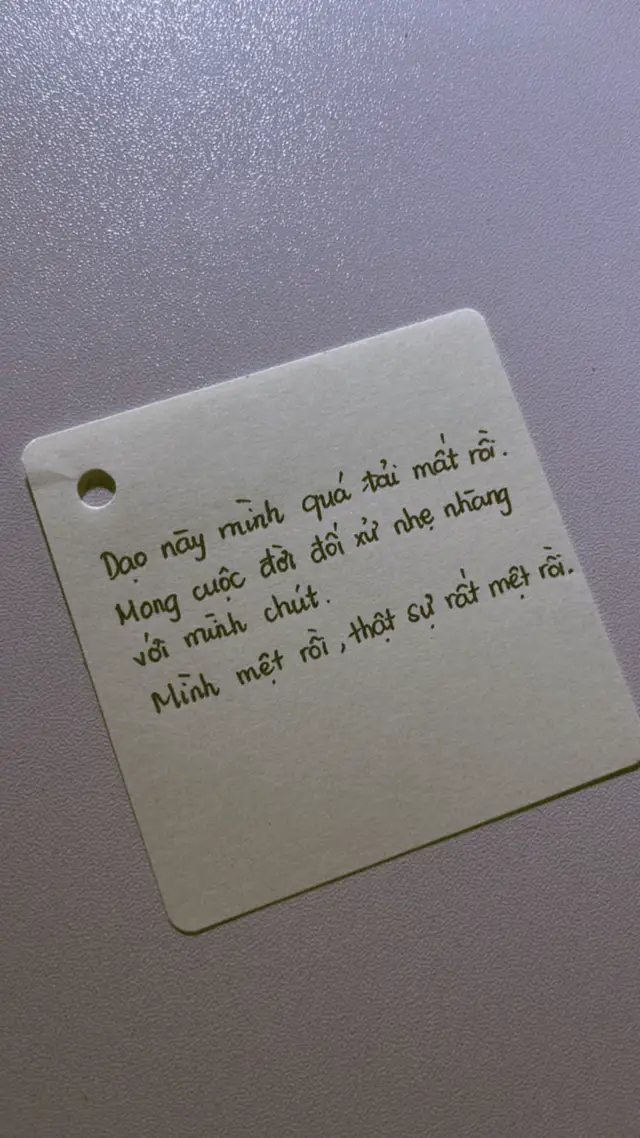 Dạo này mình quá tải mất rồi.
Mong cuộc đời đối xử nhẹ nhàng
với mình chút.
Mình mệt rồi, thật sự rất mệt rồi.